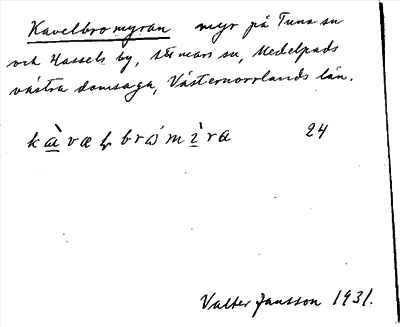 Kavelbromyran myr på Tuna sn
och Hassels by, Stöde sn, Medelpads
västra domsaga, Västernorrlands län.
kàvæɭbrωmìra 24
Valter Jansson 1931.